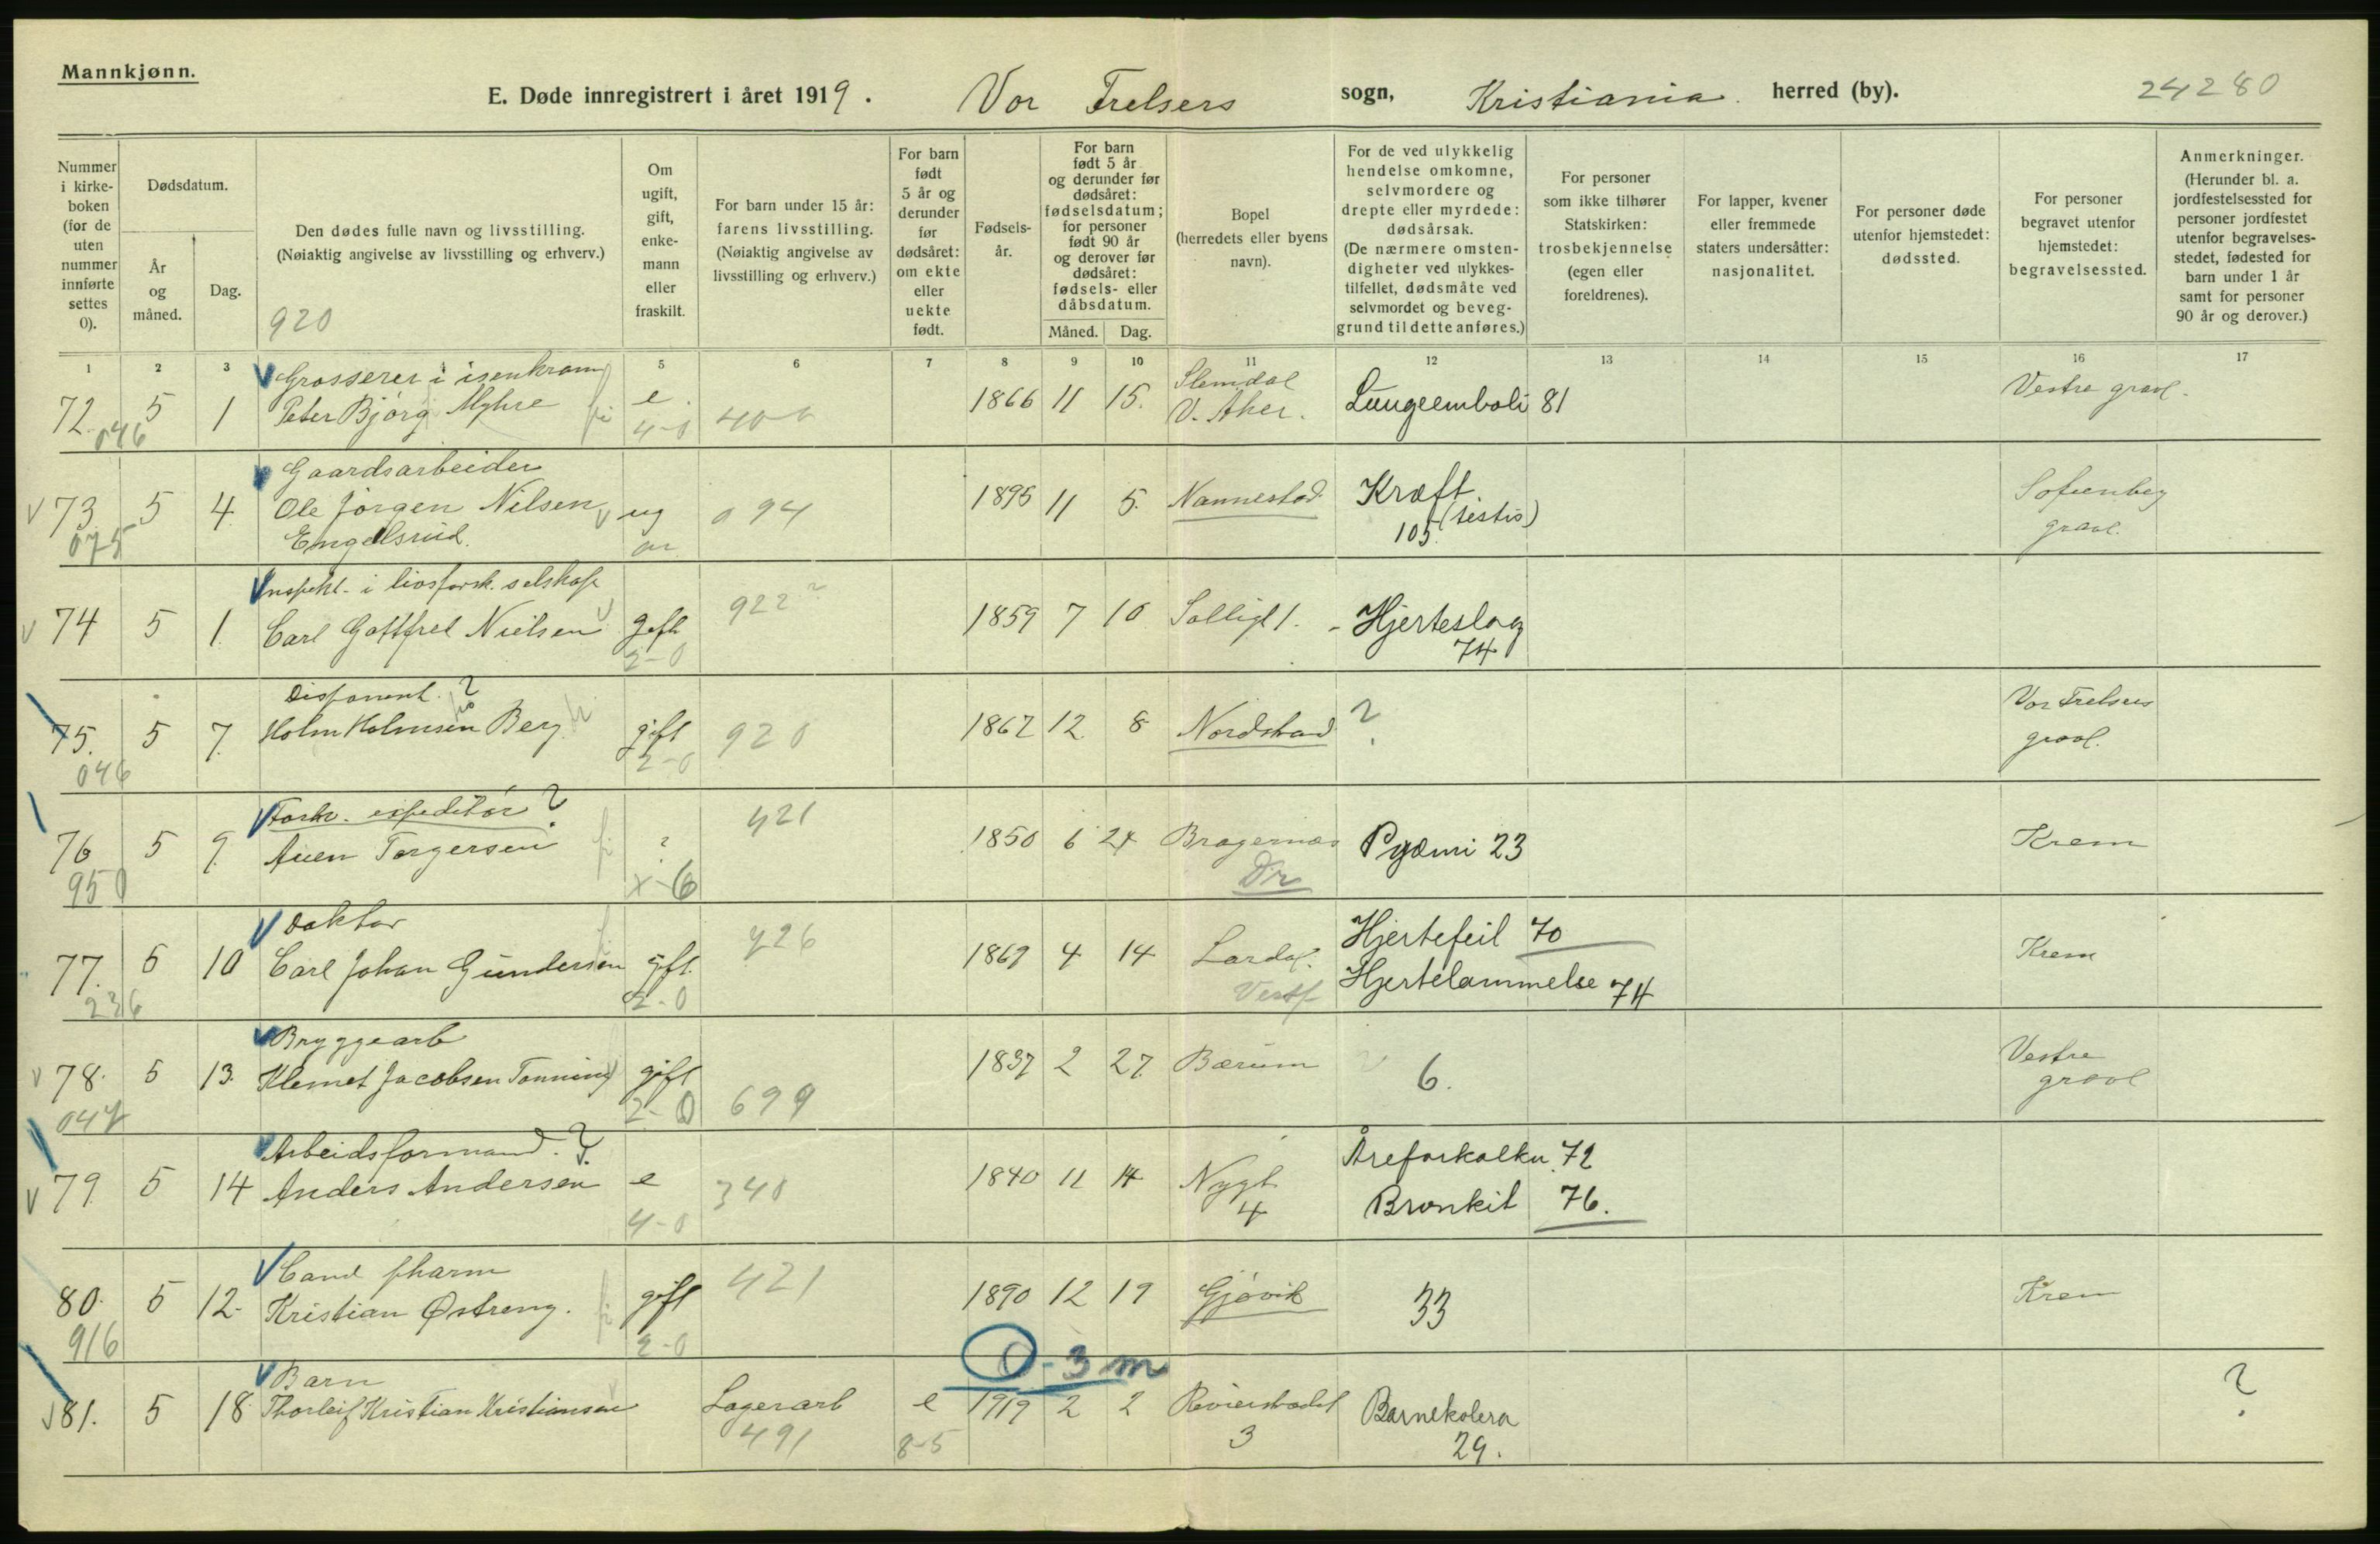 Mannkjønn.
E. Døde innregistrert i året 1919. Vor Frelsers sogn, Kristiania herred (by). 24280
Nummer i kirke-boken (for de uten nummer innførte settes 0).
Dødsdatum.
År og måned.
Dag.
Den dødes fulle navn og livsstilling.
(Nøiaktig angivelse av livsstilling og erhverv.)
920
Om ugift, gift, enke-mann eller fraskilt.
For barn under 15 år: farens livsstilling. (Nøiaktig angivelse av livsstilling og erhverv.)
For barn født 5 år og derunder før dødsåret: om ekte eller uekte født.
Fødsels-år.
For barn født 5 år og derunder før dødsåret: fødselsdatum; for personer født 90 år og derover før dødsåret: fødsels- eller dåbsdatum.
Måned. Dag.
Bopel (herredets eller byens navn).
For de ved ulykkelig hendelse omkomne, selvmordere og drepte eller myrdede: dødsårsak. (De nærmere omsten-digheter ved ulykkes-tilfellet, dødsmåte ved selvmordet og beveg-grund til dette anføres.)
For personer som ikke tilhører Statskirken: trosbekjennelse (egen eller foreldrenes).
For lapper, kvener eller fremmede staters undersåtter: nasjonalitet.
For personer døde utenfor hjemstedet: dødssted.
For personer begravet utenfor hjemstedet: begravelsessted.
Anmerkninger. (Herunder bl. a. jordfestelsessted for personer jordfestet utenfor begravelses-stedet, fødested for barn under 1 år samt for personer 90 år og derover.)
1 2 3 5 6 7 8 9 10 11 12 13 14 15 16 17
Grosserer i isenkram Slemdal
72. 5 1 Peter Bjørg Myhre e. 1866 11 15. V. Aker. Lungeemboli 81 Vestre gravl.
046 4-0
Gaardsarbeider
73 5 4 Ole Jörgen Nilsen ug 094 1895 11 5. Nannestad Kræft (testis) Sofienberg gravl.
075 Engelsrud 105
i livsfors. selskap 922?
74 5 1. Carl Gottfred Nielsen gift 1859 7 10 Solligt 1. Hjerteslag
2-0 74
Disponent ?
75. 5 7. Holm Holmsen Berg gift 920 1862 12 8 Nordstrand ? Vor Frelsers gravl.
046 2-0
Fork. espeditør ? 421
76 5 9. Torgersen ? 1850 6 24 Bragernæs Pyæmi 23 Krem
950 x-6 Dr
Doktor 426 Hjertefeil 70
77. 5 10 Carl Johan Gundersen gft. 1869 4 14 Lardal. Hjertelammelse 74 Krem
236 2-0 Vestf
Bryggearb
78. 5 13. Klemet Jacobsen Tonning gift 699 1837 2 27. Bærum 6. Vestre gravl
047 2-0
Arbeidsformand. ? Åreforkalkn. 72
79 5 14 Anders Andersen e 340 1840 11 14 Nygt 4 Bronkit 76.
4-0
Cand pharm 421
80. 5 12. Kristian Østreng. gift 1890 12 19 Gjøvik 33 Krem
916 2-0
0-3 m
Barn
81. 5 18 Thorleif Kristian Kristiansen Lagerarb e 1919 2 2 Revierstrædet 3 Barnekolera ?
491 8-5 29.